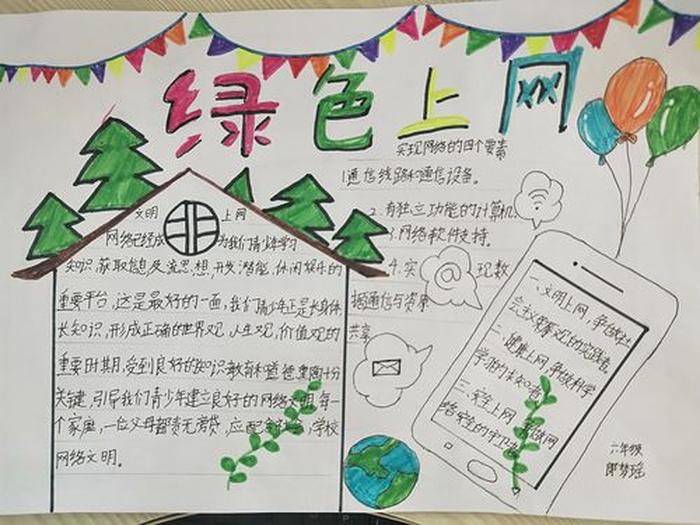 绿色上网
文明 上网
网络已经成 为我们青少年学习
知识,获取信息,交流思想,开发潜能,休闲娱乐的
重要平台,这是最好的一面,我们青少年正是长身体,
长知识,形成正确的世界观,人生观,价值观的
重要时期,受到良好的知识教育和 熏陶十分
关键,引导我们青少年建立良好的网络文明,每一
个家庭,一位父母都责无旁贷,应配合社会,学校
网络文明。
实现网络的四个要素
1.通信线路和通信设备。
2.有独立功能的计算机。
3.网络软件支持。
4.实 现数
据通信与资源
共享
一、文明上网,争做社
会主义荣辱观的实践者。
二、健康上网,争做科学
学习的求知者。
三、安全上网,争做网
络安全的守卫者
六年级